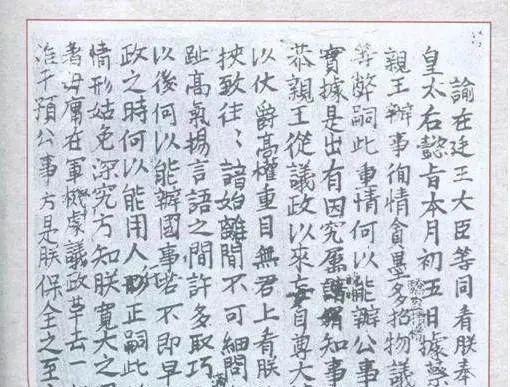 諭在廷王大臣等同看朕奉
皇太后懿旨本月初五日據
親王辦事徇情貪墨多招物議
等弊嗣此重情何以能辦公事
實據是出有因究屬知事
恭親王從議政以來妄自尊大
以仗爵高權重目無君上看朕
挾致往〻諳始離間不可細問
趾高氣揚言語之間許多取巧
以後何以能辦國事皆不即早
政之時何以能用人行正嗣此
情形姑免深究方知朕寬大之
者毋庸在軍機議政革去一
准干預公事方是朕保全之至